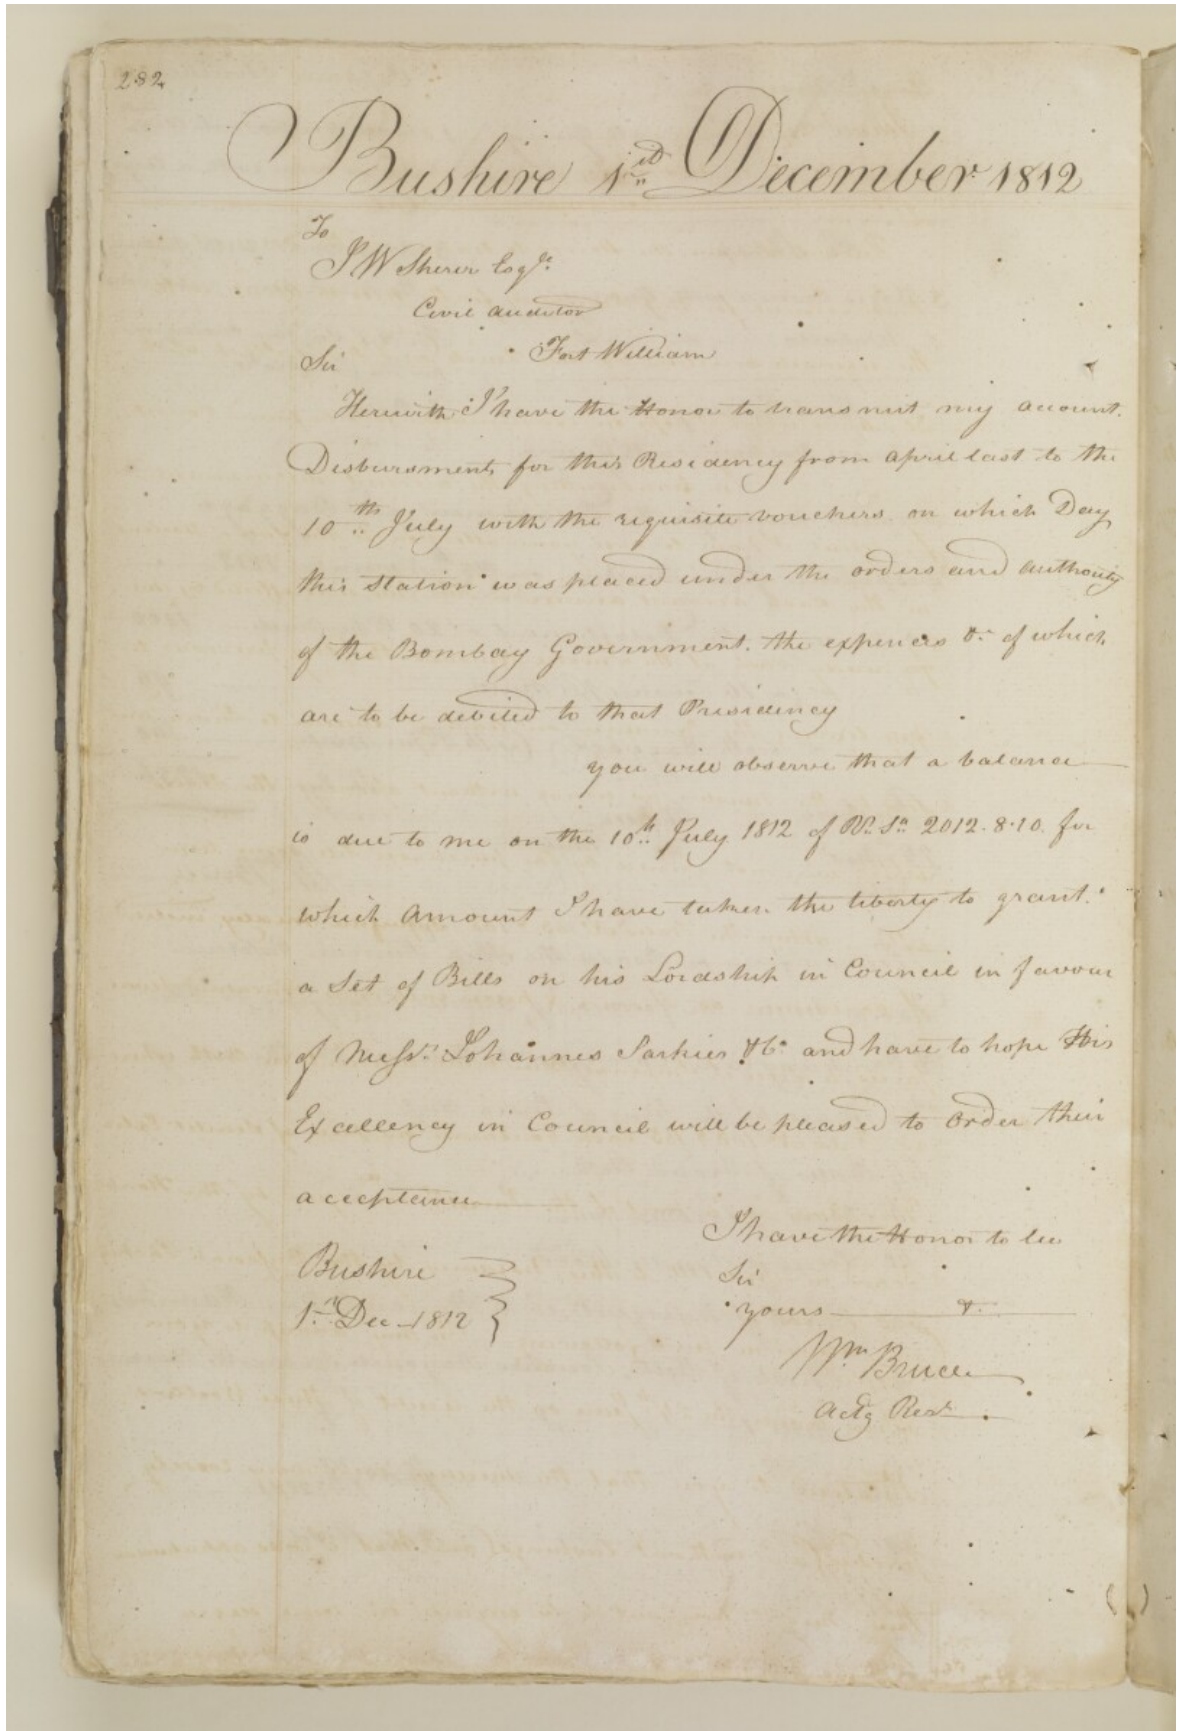 282
Bushire 1st December 1812
To
J W Sherer Esqr.
Civil Auditor
Fort William
Sir
Herewith I have the Honor to transmit my account.
Disbursments for this Residency from April last to the
10th July with the requisite vouchers on which Day
this Station was placed under the orders and authority
of the Bombay Government. the expences &c of which
are to be debited to that Presidency
you will observe that a balance
is due to me on the 10th July 1812 of Rs. Sa. 2012.8.10. for
which Amount I have taken the liberty to grant.
a Set of Bills on his Lordship in Council in favour
of Messrs. Johannes Sarkies &Co and have to hope His
Excellency in Council will be pleased to order their
acceptance
I have the Honor to be
Bushire
Sir
1st Dec 1812
yours &c.
Wm Bruce
Actg Rest.